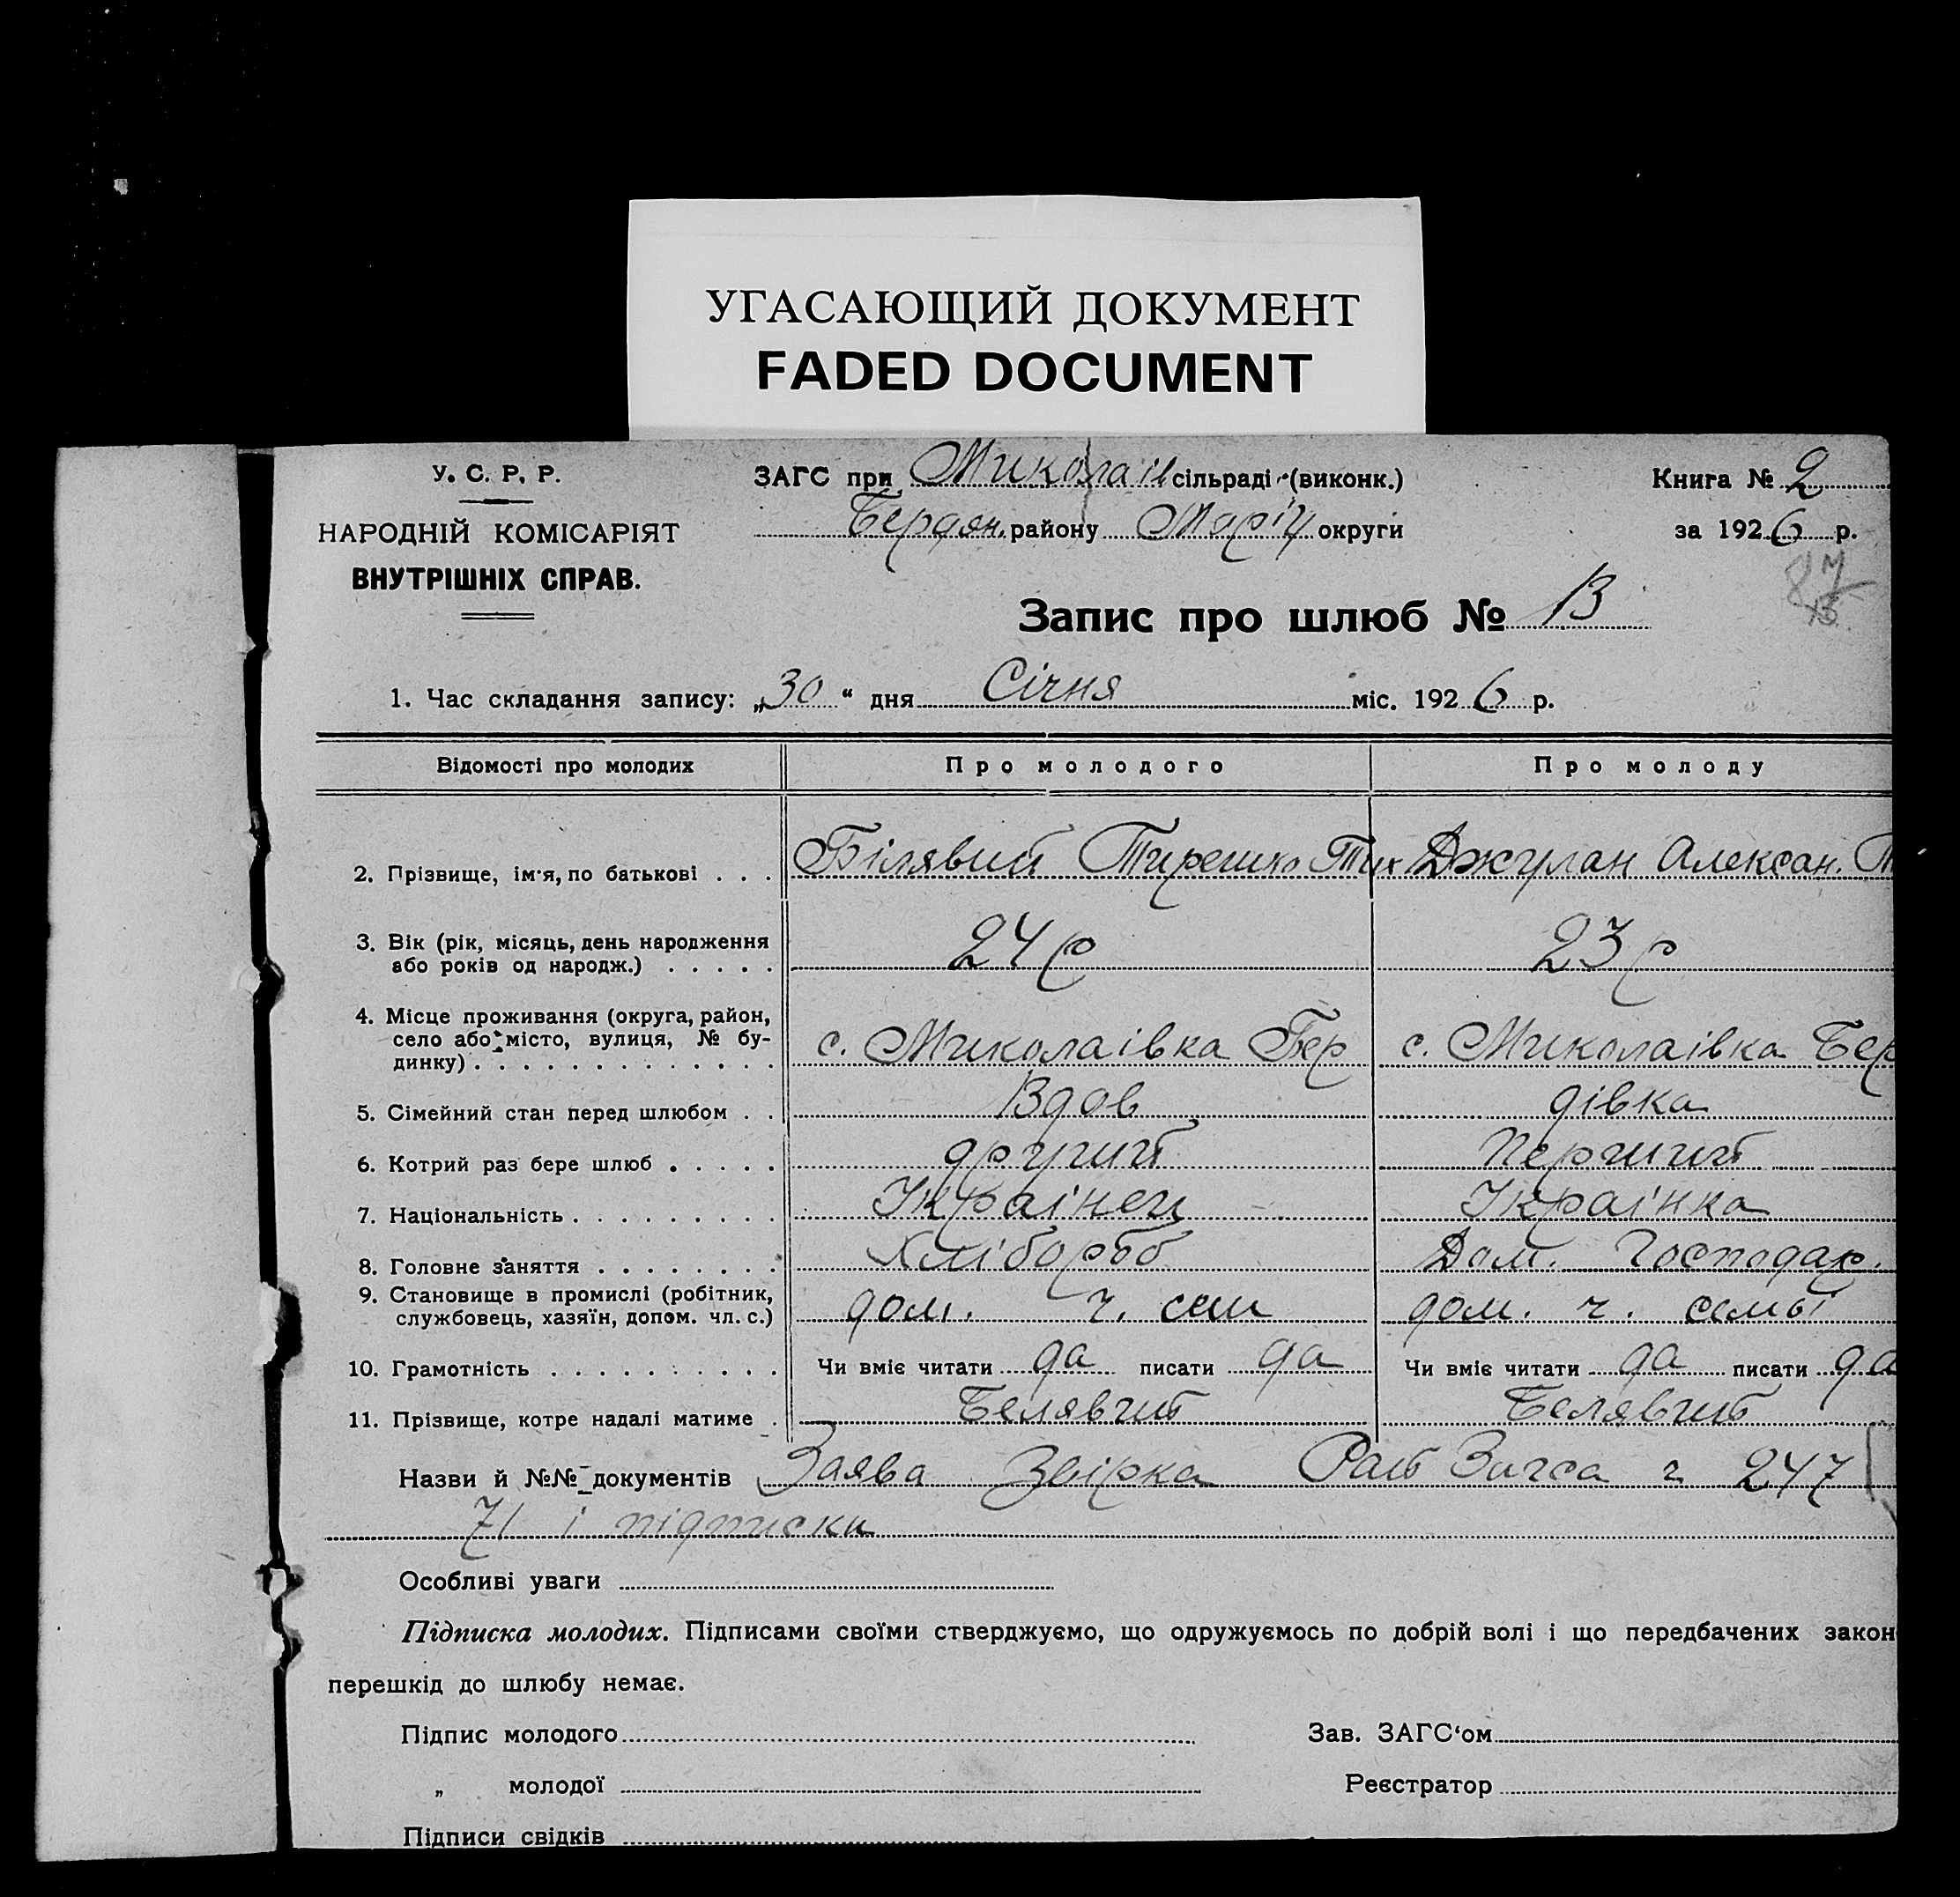 УГАСАЮЩИЙ ДОКУМЕНТ
FADED DOCUMENT
У. С. Р. Р.
НАРОДНІЙ КОМІСАРІЯТ
ВНУТРІШНІХ СПРАВ.
ЗАГС при Миколаів сільраді (виконк.)
Бердян. району Маріу округи
Книга № 2
за 1926 р.
Запис про шлюб № 13
1. Час складання запису: „30“ дня Січня міс. 1926 р.
Відомості про молодих Про молодого Про молоду
2. Прізвище, ім'я, по батькові . . . Білявий Тирешко Тих Джулан Алексан. Т
3. Вік (рік, місяць, день народження
або років од народж.) . . . . . 24 р 23 р
4. Місце проживання (округа, район,
село або місто, вулиця, № бу-
динку) . . . . . . . . . . . . . с. Миколаівка Бер с. Миколаівка Бер
5. Сімейний стан перед шлюбом . . Вдов дівка
6. Котрий раз бере шлюб . . . . . другий первий
7. Національність . . . . . . . . . Украінец Украінка
8. Головне заняття . . . . . . . . Хлібороб Дом. Господар.
9. Становище в промислі (робітник,
службовець, хазяїн, допом. чл. с.) дом. ч. сем дом. ч. семьі
10. Грамотність . . . . . . . . . . Чи вміє читати да писати да Чи вміє читати да писати да
11. Прізвище, котре надалі матиме . Белявий Белявий
Назви й №№ документів Заява Звірка Рай Загса ч 247
71 і підписки
Особливі уваги
Підписка молодих. Підписами своїми стверджуємо, що одружуємось по добрій волі і що передбачених закон
перешкід до шлюбу немає.
Підпис молодого Зав. ЗАГС'ом
„ молодої Реєстратор
Підписи свідків